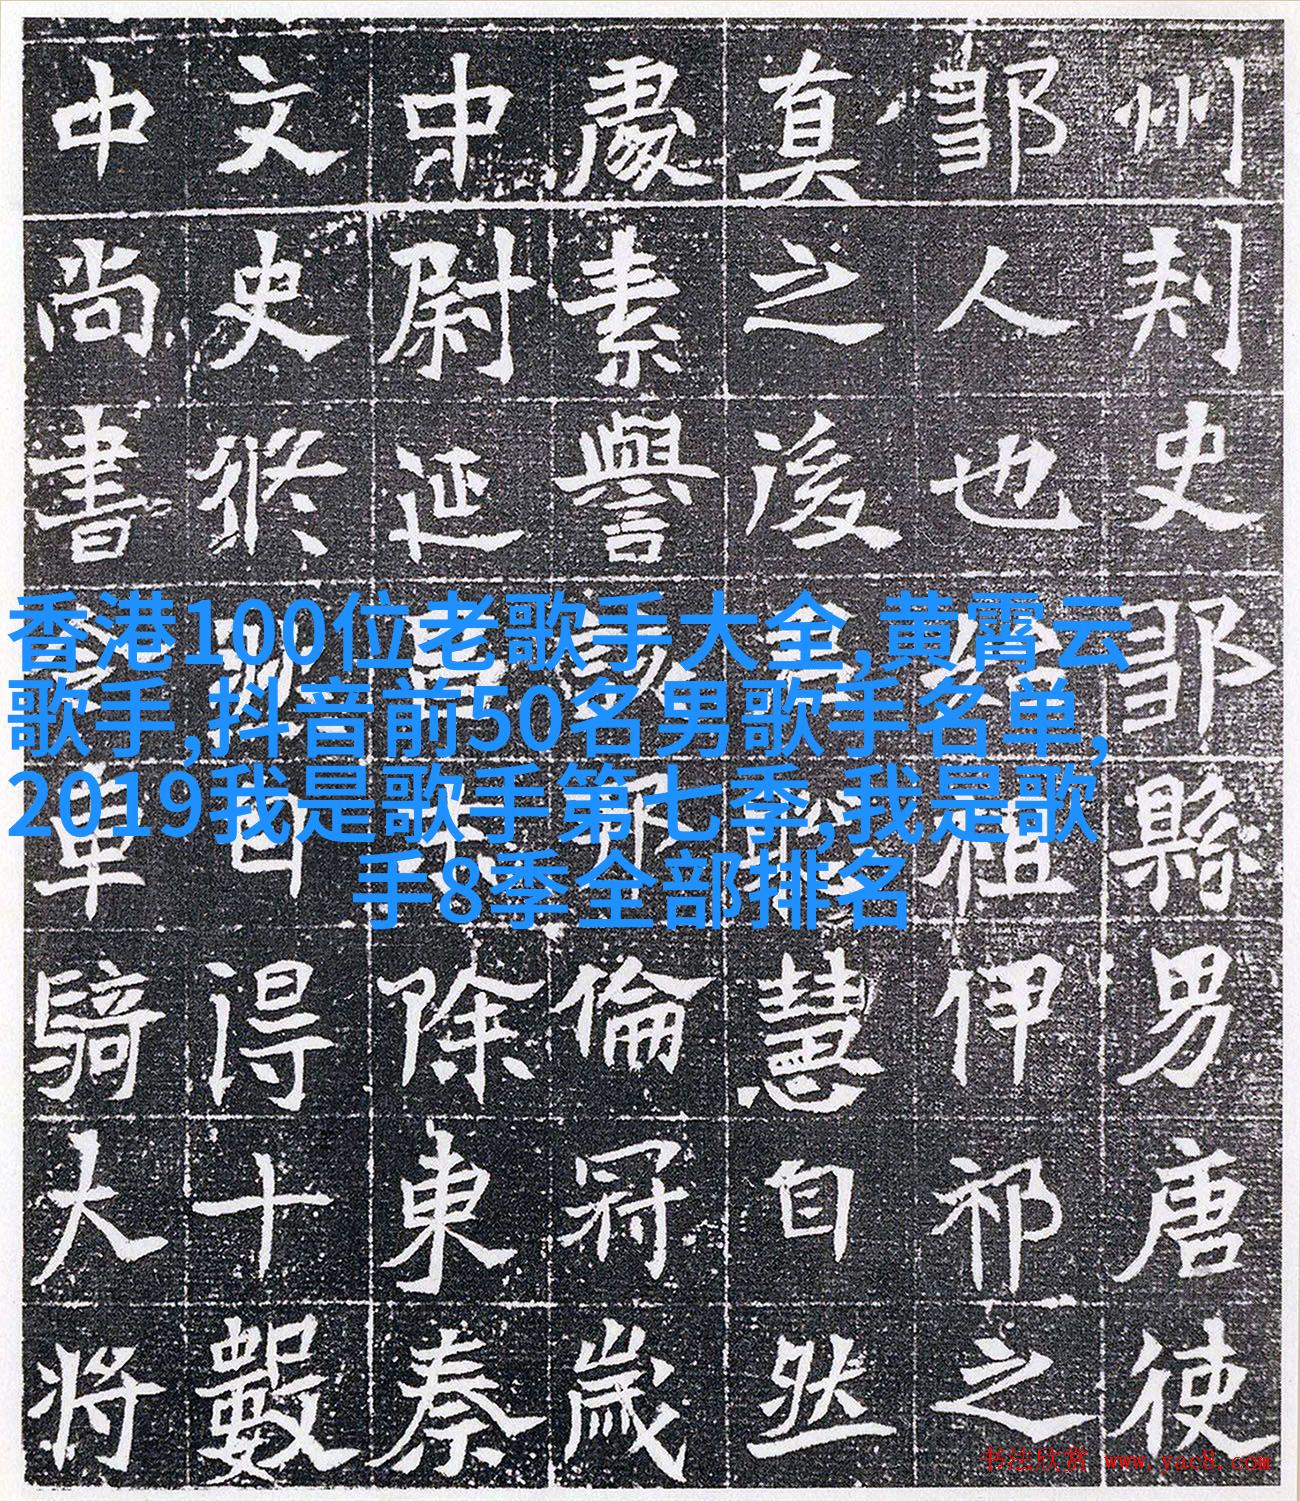 州刾史鄒縣男唐使
鄒人也始祖伊祁之
真之後慧自然
處素譽倫冠歲
中尉延除東秦
文史得十數
中尚書車騎大將
香港100位老歌手大全,黄霄云
歌手,抖音前50名男歌手名单,
2019我是歌手第七季,我是歌
手8季全部排名
书法欣赏 www.yac8.com